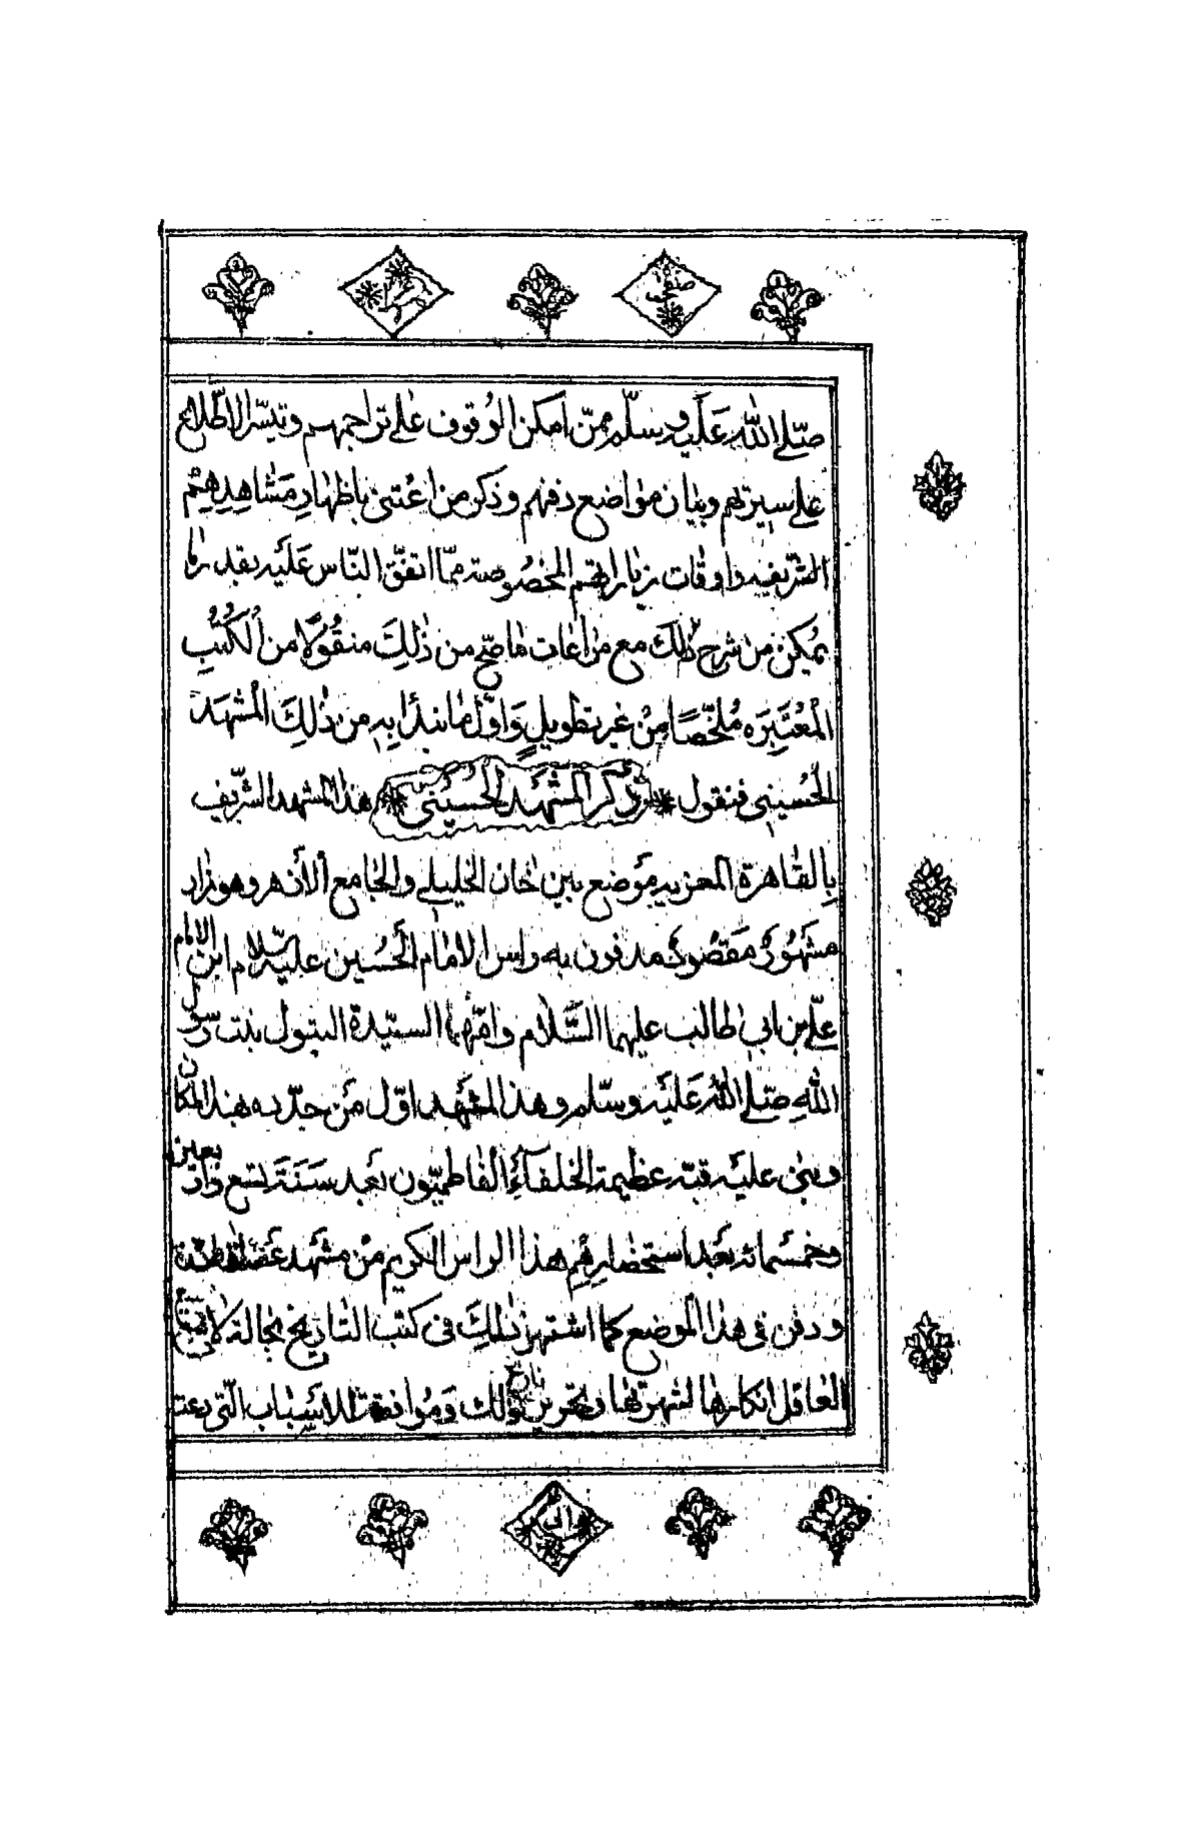 صلى الله عليه وسلم ممن امكن الوقوف على تراجمهم وتيسر الاطلاع
على سيرتهم وبيان مواضع دفنهم وذكر من اعتنى باظهار مشاهدهم
الشريفه واوقات زياراتهم المخصوصة مما اتفق الناس عليه بقدر ما
يمكن من شرح ذلك مع مراعات ما صح من ذلك منقولا من الكتب
المعتبره ملخصا من غير تطويل واول ما نبدا به من ذلك المشهد
الحسيني فنقول ذكر المشهد الحسيني هذا المشهد الشريف
بالقاهرة المعزيه بموضع بين خان الخليلي والجامع الازهر وهو مزار
مشهور مقصود مدفون به راس الامام الحسين عليه السلام ابن الامام
علي بن ابي طالب عليهما السلام وامهما السيدة البتول بنت رسول
الله صلى الله عليه وسلم وهذا المشهد اول من جدده بهذا المكان
وبنى عليه قبه عظيمة الخلفآء الفاطميون بعد سنة تسع واربعين
وخمسمائه بعد استحضارهم هذا الراس الكريم من مشهد عسقلان
ودفن في هذا الموضع كما اشتهر ذلك في كتب التاريخ بحالة لا
العاقل انكارها لشهرتها ذلك وموافقة الاسباب التي